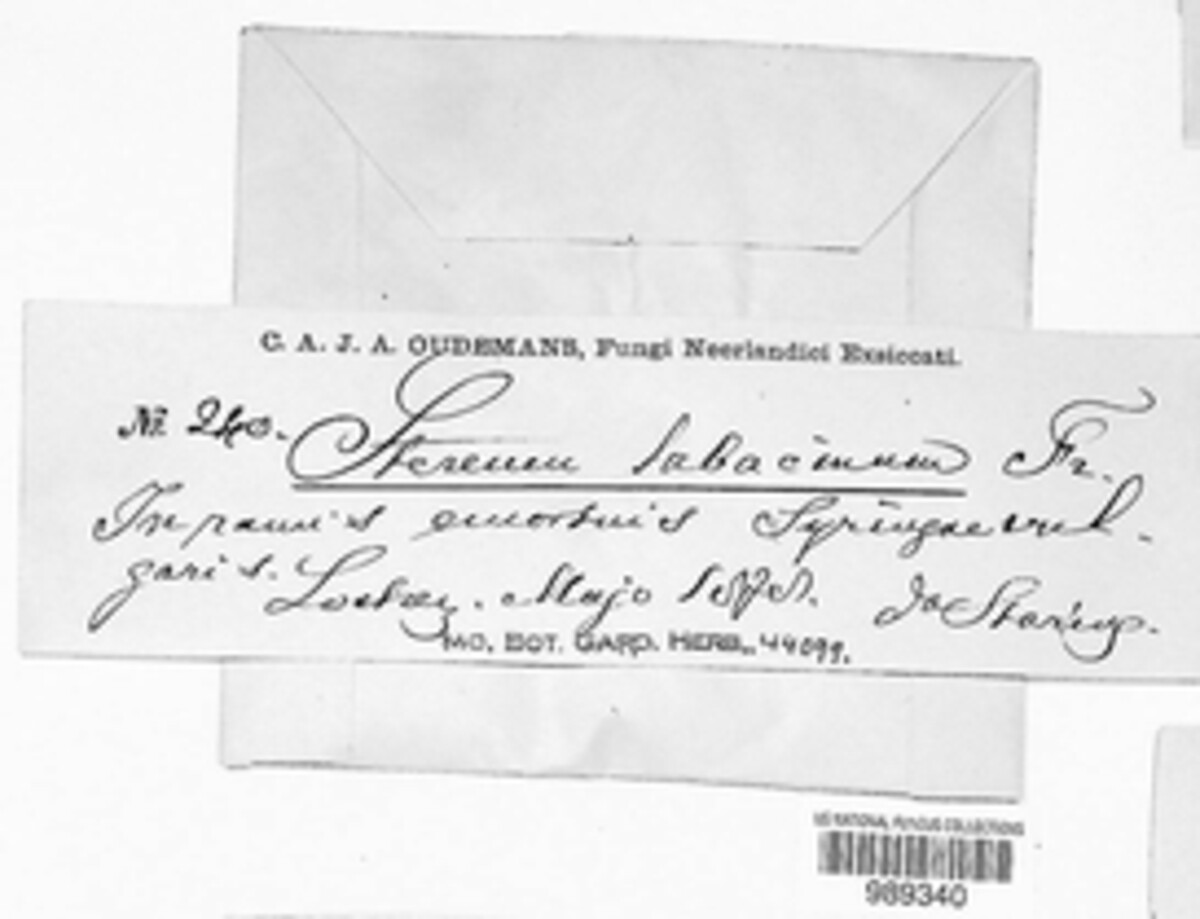 C. A. J. A. OUDEMANS, Fungi Neerlandici Exsiccati.
No. 240. Stereum tabacinum Fr.
In ramis emortuis Syringae vul-
garis. Majo
MO. BOT. GARD. HERB., 44099.
US NATIONAL FUNGUS COLLECTIONS
989340